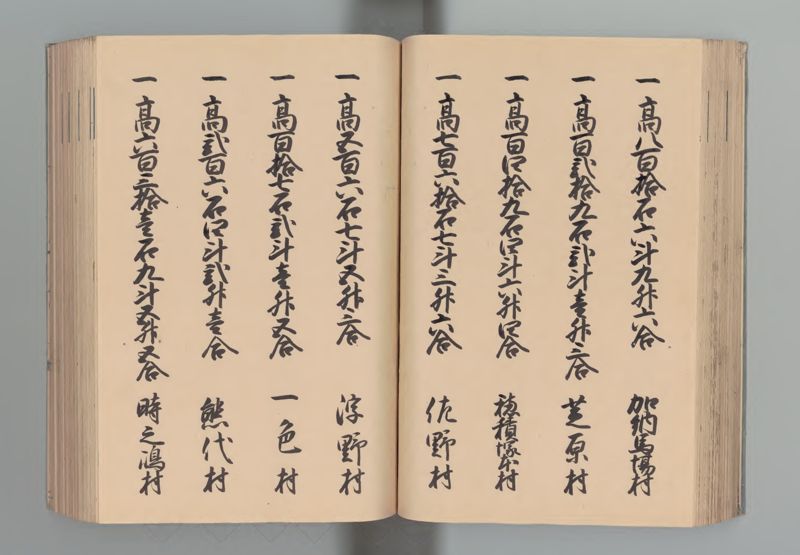 一高八百拾石六斗九升六合 加納馬場村
一高百弐拾九石弐斗壱升三合 芝原村
一高百四拾九石四斗六升四合 穂積塚本村
一高七百六拾石七斗三升六合 佐野村
一高五百六石七斗五升三合 浮野村
一高百拾七石弐斗壱升五合 一色村
一高弐百六石四斗弐升壱合 熊代村
一高六百三拾壱石九斗五升五合 時之嶋村